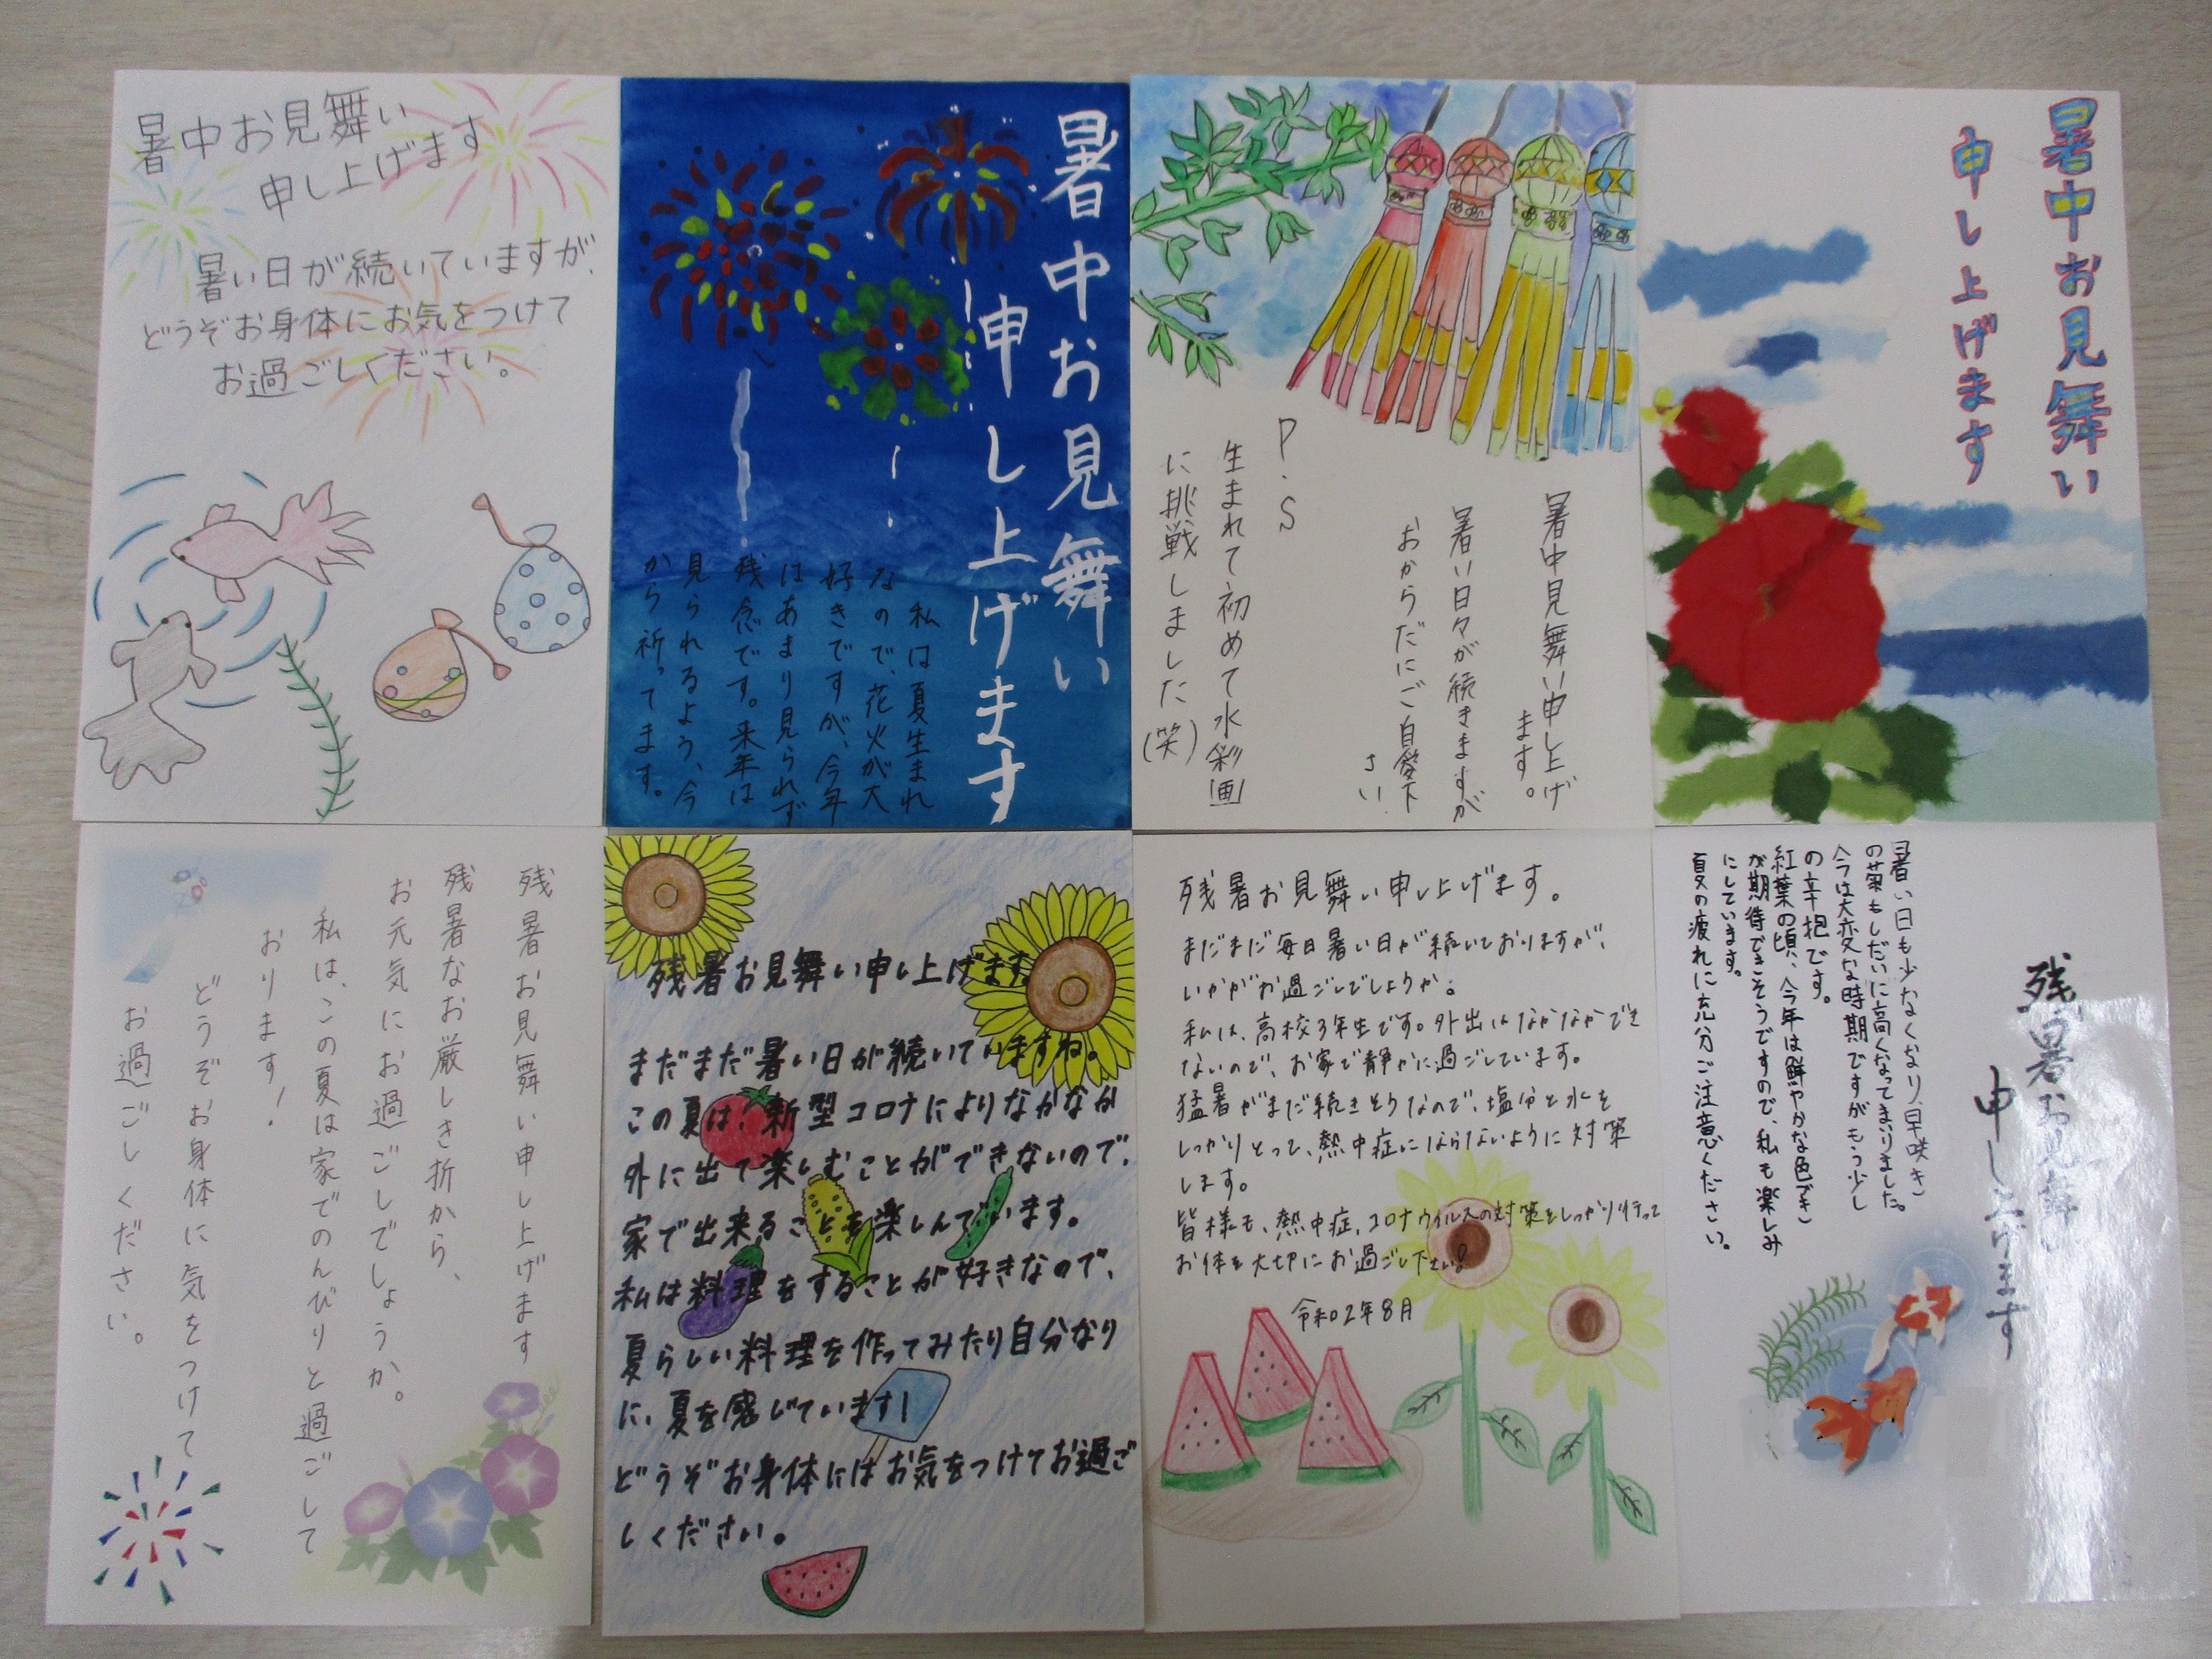 暑中お見舞い
申し上げます
暑い日が続いていますが、
どうぞお身体にお気をつけて
お過ごしください。
暑中お見舞い
申し上げます
私は夏生まれ
なので、花火が大
好きですが、今年
はあまり見られず
残念です。来年は
見られるよう、今
から祈ってます。
暑中見舞い申し上げ
ます。
暑い日々が続きますが
おからだにご自愛下
さい
P.S
生まれて初めて水彩画
に挑戦しました(笑)
暑中お見舞い
申し上げます
残暑お見舞い申し上げます
残暑なお厳しき折から、
お元気にお過ごしでしょうか。
私は、この夏は家でのんびりと過ごして
おります!
どうぞお身体に気をつけて
お過ごしください。
残暑お見舞い申し上げます。
まだまだ暑い日が続いていますね。
この夏は、新型コロナによりなかなか
外に出て楽しむことができないので、
家で出来ることを楽しんでいます。
私は料理をすることが好きなので、
夏らしい料理を作ってみたり自分なり
に、夏を感じています!
どうぞお身体にはお気をつけてお過ご
しください。
残暑お見舞い申し上げます。
まだまだ毎日暑い日が続いておりますが、
いかがお過ごしでしょうか。
私は、高校3年生です。外出はなかなかでき
ないので、お家で静かに過ごしています。
猛暑がまだ続きそうなので、塩分と水を
しっかりとって、熱中症にならないように対策
します。
皆様も、熱中症、コロナウイルスの対策をしっかり行って
お体を大切にお過ごし下さい!
令和02年8月
残暑お見舞い
申し上げます
暑い日も少なくなり、早咲き
の菊もしだいに高くなってまいりました。
今は大変な時期ですがもう少し
の辛抱です。
紅葉の頃、今年は鮮やかな色でき
が期待できそうですので、私も楽しみ
にしています。
夏の疲れに充分ご注意ください。